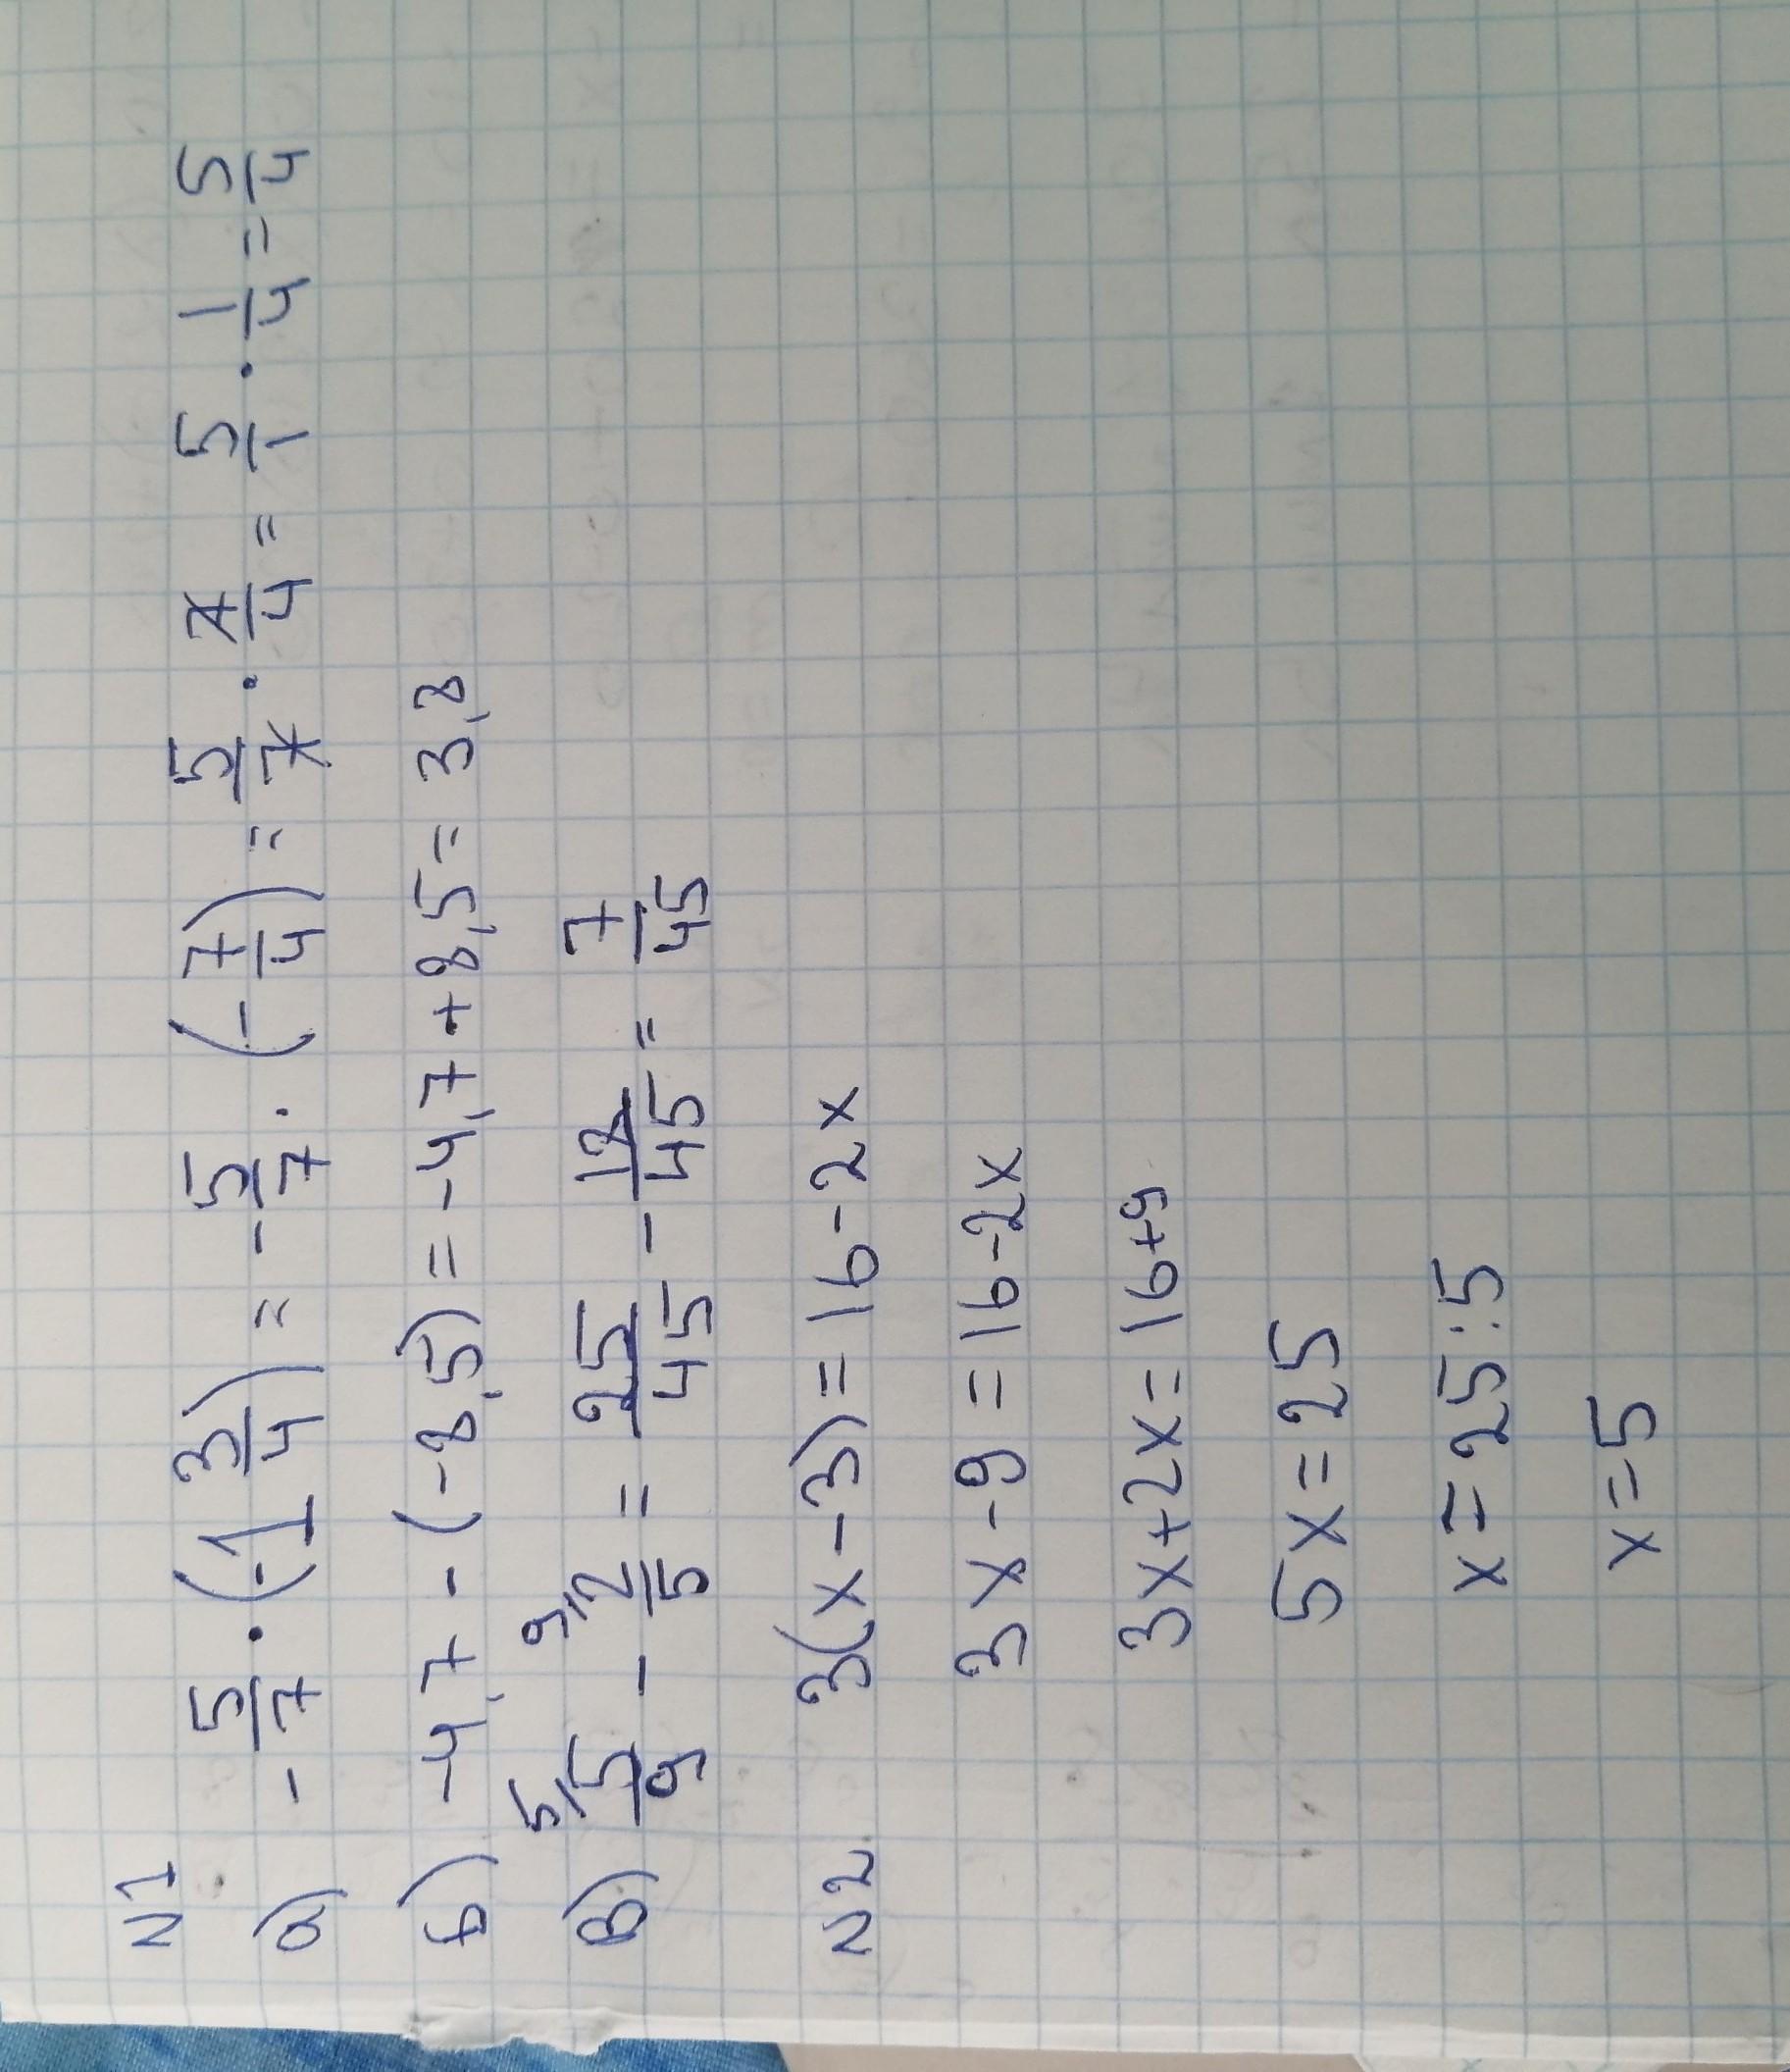 N1
а) -5/7 · (-1 3/4) = -5/7 · (-7/4) = 5/7 · 7/4 = 5/1 · 1/4 = 5/4
б) -4,7 - (-8,5) = -4,7 + 8,5 = 3,8
в) 5/9 - 2/5 = 25/45 - 18/45 = 7/45
N2. 3(x-3) = 16-2x
3x-9 = 16-2x
3x+2x = 16+9
5x = 25
x = 25:5
x = 5